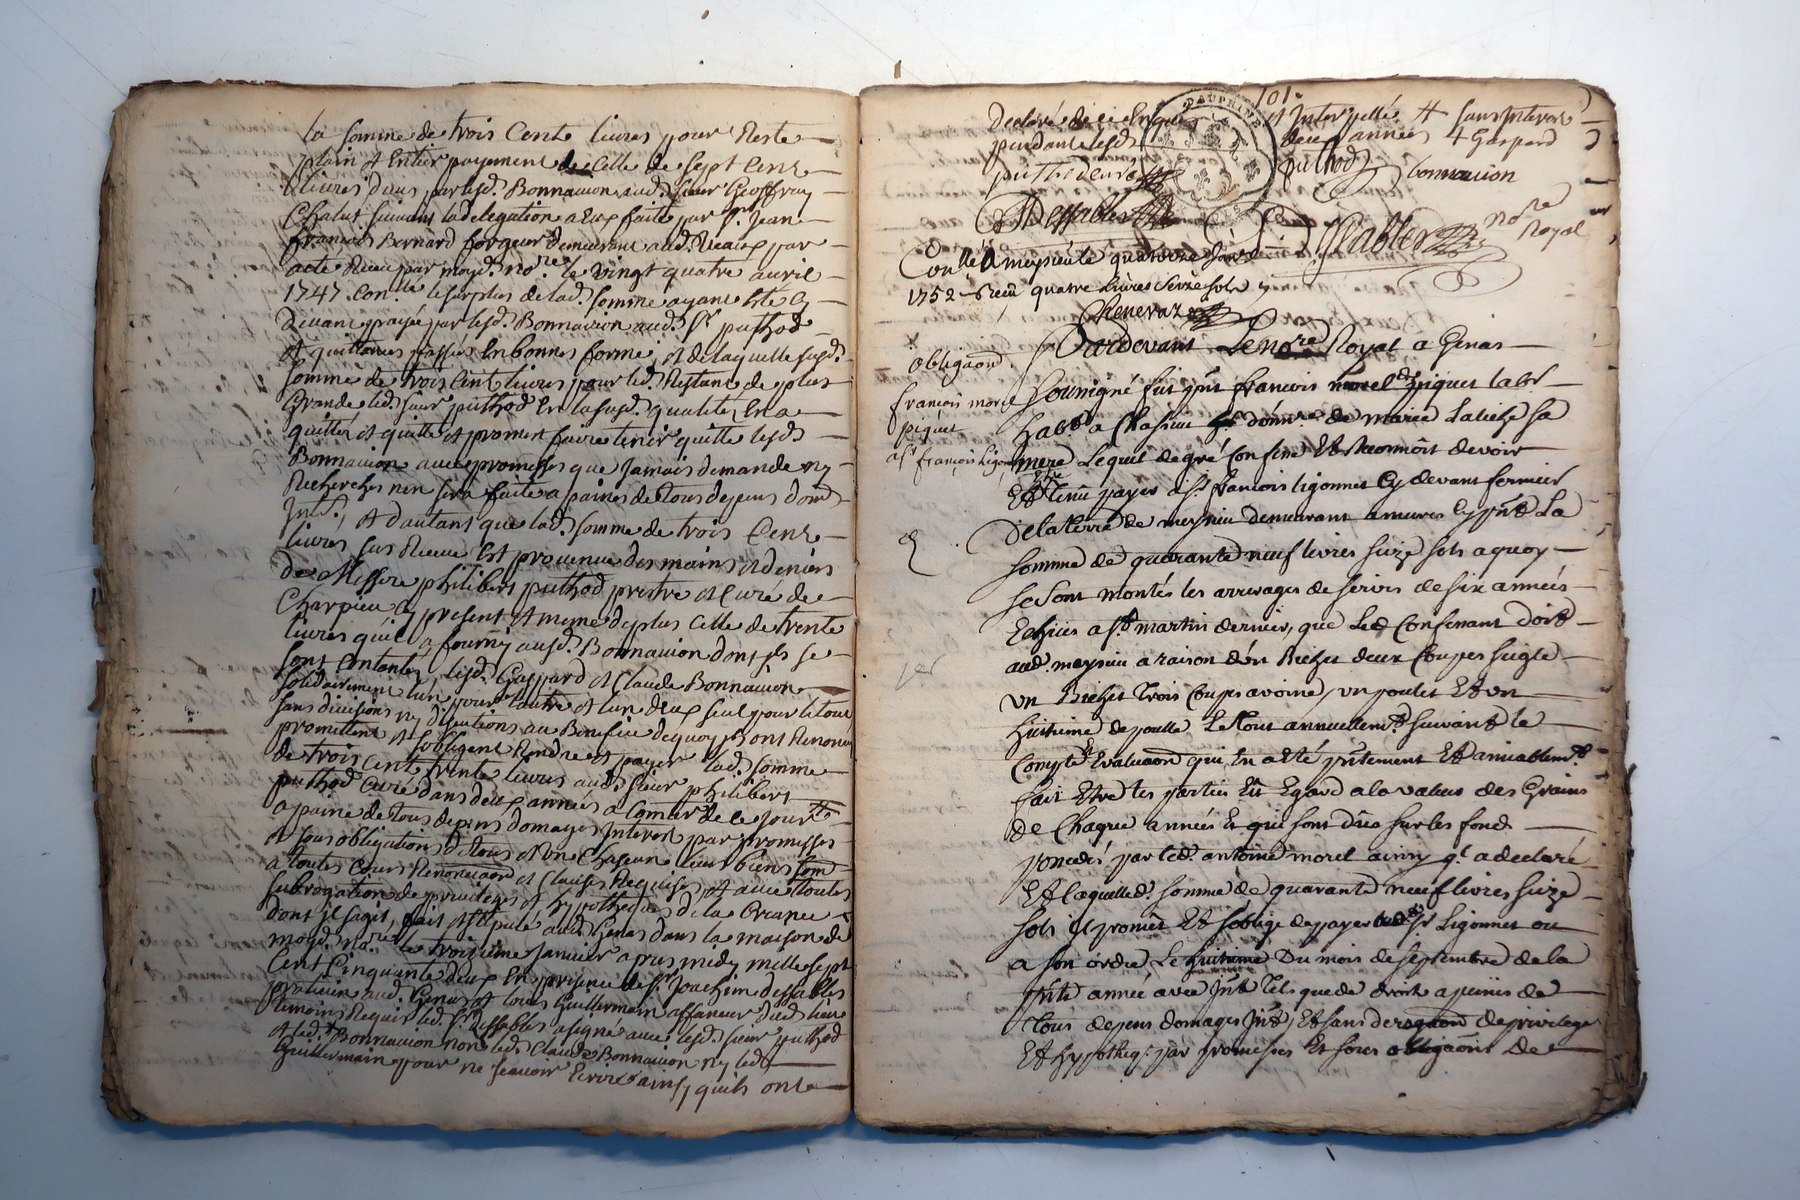 la somme de trois Cents livres pour Reste
plain et Entier payement de Celle de Sept Cens
livres dues par lesd. Bonnavion aud. sieur Geoffray
Chalut suivant la delegation a eux faite par Sr. Jean
francois Bernard forgeur demeurant aud. par
acte Receu par moyd. nore. le vingt quatre avril
1747. Con.lle le surplus de lad. somme ayant Eté Cy
devant payée par lesd. Bonnavion aud. Sr. puthod
et quittances passées En bonnes forme, et de laquelle susd.
somme de trois Cent livres pour led. Restant de plus
Grande led. sieur puthod En la susd. qualité En a
quitté et quitte et promet faire tenir quitte lesd.
Bonnavion avec promesses que Jamais demande ny
Recherches n'en sera faite a paines de tous depens dom.
Int., et d'autant que lad. somme de trois Cens
livres sus Receue Est provenue des mains et deniers
de Messire philibert puthod pretre et Curé de
Charpieu Cy present et meme de plus Celle de trente
livres qu'il a fourny ausd. Bonnavion dont ils se
sont Contentés lesd. Gaspard et Claude Bonnavion
solidairement l'un pour l'autre et l'un d'eux seul pour le tout
sans divisions ny discutions au Benefice de quoy ils ont Renoncé
promettent et s'obligent Rendre et payer lad. somme
de trois cent trente livres aud. sieur philibert
puthod Curé dans deux années a Comter de ce jour
a paine de tous depens domages Interest par promesses
et sous obligations de tous et un Chacun leurs biens
a toutes Cours Renonciaon et Clauses Requises et avec toutes
subrogation de privileges et hypotheques de la Creance
dont il s'agit, fait et stipulé aud. Genas dans la maison de
moyd. nore. le troisieme Janvier apres midy mille sept
Cent Cinquante deux En presence de Sr. Joachim dessables
praticien aud. Genas et Louis Guillermain affaneur dud. lieu
temoins Requis led. Sr. dessables a signé avec lesd. sieur puthod
et led. Bonnavion non led. Claude Bonnavion ny led.
Guillermain pour ne sçavoir Ecrire ainsy qu'ils ont
101
DAUPHINÉ
Declaré de ce Enquis et Interpellé # sans Interest
pendant lesd. deux années # Gaspard
puthod Bonnavion
Dessables
Sables nore Royal
Conllé A meyzieu le quatorze janv.
1752 Receu quatre Livres Seize sols
Cheneraz
obligaon
francois morel
piquet
a Sr. francois Ligonnet
Pardevant Le nore. Royal a Genas
soussigné fut pnt francois morel piquet labr.
habt. a Chassieu donnre. de marie
mere Lequel de gré Confesse Et Reconnoit devoir
Et tenu payer a Sr. francois ligonnet Cy devant fermier
De la terre de meyzieu demeurant a mures Cy pnt La
somme de quarante neuf livres seize sols a quoy
se sont montés les arrerages de servis de six années
Echües a St. martin dernier, que Led. Confessant doit
aud. meyzieu a raison d'un Bichet deux Coupes seigle
un Bichet trois Coupes avoine, un poulet Et un
huitieme de poulle Le tout annuellemt. suivant le
Compte Evaluaon qui En a eté pntement Et amiablemt.
fait Etre les parties Eu Egard a la valeur des Grains
de Chaque années Et qui sont dûs sur les fond
par led. antoine morel ainsy q'il a declaré
Et laquelle d. somme de quarante neuf livres seize
sols il promet Et s'oblige de payer aud. Sr Ligonnet ou
a son ordre Le huitieme Du mois de septembre de la
pnte année avec Int. tels que de droit a peines de
tous depens domages Int. Et sans derogaon de privilege
Et hypotheq. par promesses Et sous obligaons de